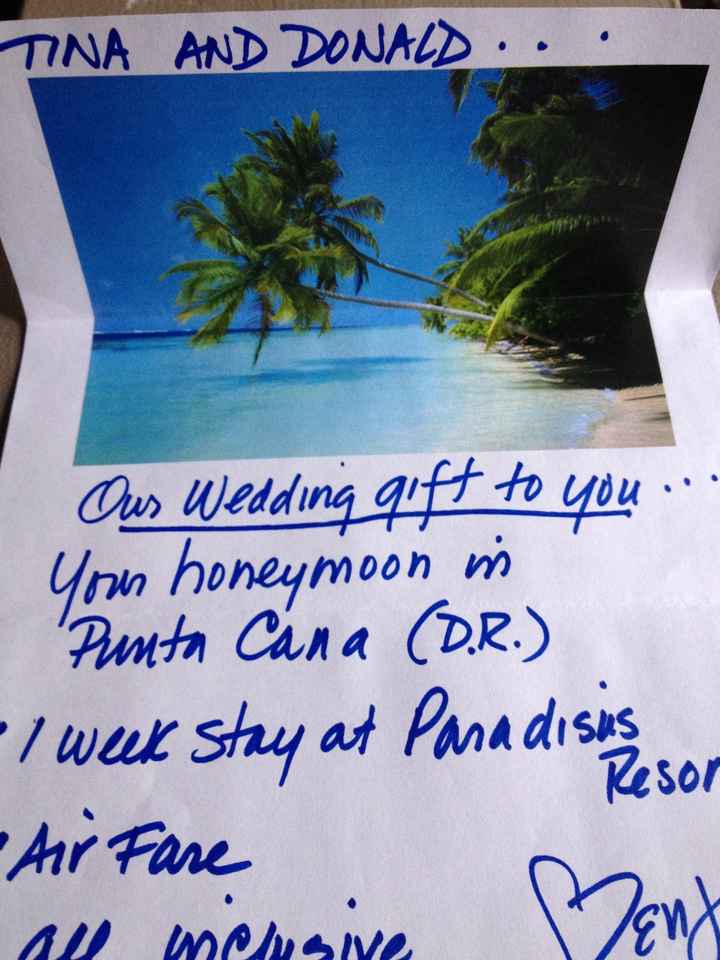 TINA AND DONALD...
Our Wedding gift to you...
Your honeymoon in
Punta Cana (D.R.)
• 1 week stay at Paradisus
Resor
• Air Fare
all inclusive